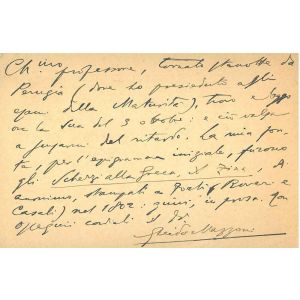 Ch.mo professore, tornato stanotte da
Perugia (dove ho presieduto agli
esami della Maturità), trovo e leggo
ora la Sua del 3 ottobre: e ciò valga
a scusarmi del ritardo. La mia fon-
te, per l'epigramma iniziale, furono
gli Scherzi alla Greca, il Fine, A
anonimo, stampati a Prati (
Casali) nel 1802: quivi, in prosa. Con
ossequii cordiali il di
Guido Mazzoni